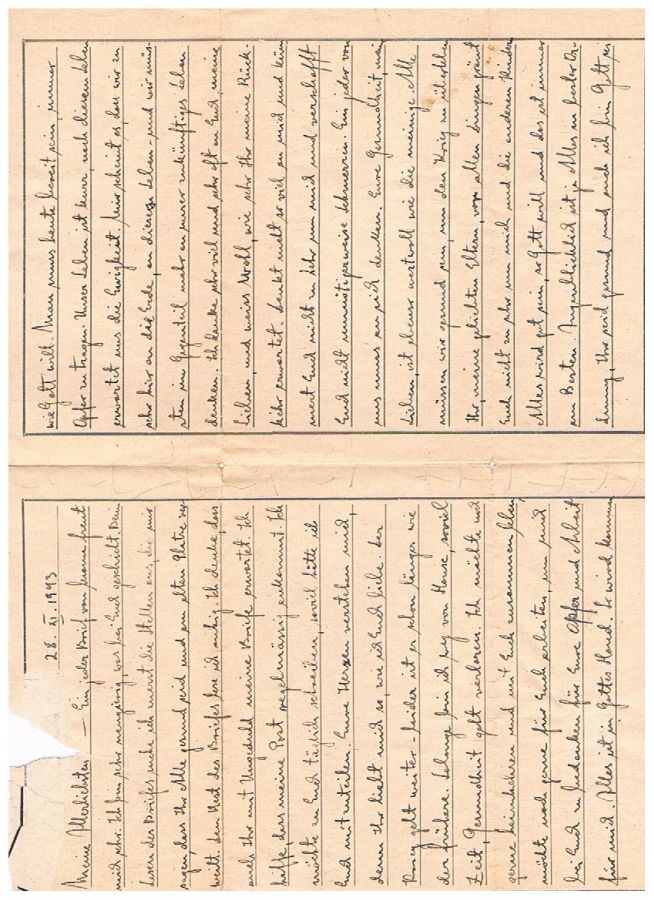 28. XI. 1943
Meine Allerliebsten — Ein jeder Brief von Mama freut
mich sehr. Ich bin sehr neugierig was bei Euch geschieht. Beim
Lesen des Briefes suche ich zuerst die Stellen aus, die mir
sagen, dass Ihr Alle gesund seid und am alten Platze ver-
weilt. Den Rest des Briefes lese ich ruhig. Ich denke, dass
auch Ihr mit Ungeduld meine Briefe erwartet. Ich
hoffe, dass meine Post regelmässig ankommt. Ich
möchte an Euch täglich schreiben, soviel hätte ich
Euch mitzuteilen. Eure Herzen verstehen mich,
denn Ihr liebt mich so, wie ich Euch liebe. Der
Krieg geht weiter – leider ist er schon länger wie
der frühere. Solange bin ich weg von Hause, soviel
Zeit, Gesundheit geht verloren. Ich möchte wohl
gerne heimkehren und mit Euch zusammen leben,
möchte noch gerne für Euch arbeiten, um mich
bei Euch zu bedanken für Eure Opfer und Arbeit
für mich. Alles ist in Gottes Hand. Es wird kommen
wie Gott will. Man muss heute bereit sein, immer
Opfer zu tragen. Unser Leben ist kurz, nach diesem Leben
erwartet uns die Ewigkeit. Mir scheint es, dass wir zu
sehr hier an die Erde, an dieses Leben – und wir müs-
sten im Gegenteil mehr an unser zukünftiges Leben
denken. Ich denke sehr viel und sehr oft an Euch, meine
Lieben, und weiss Wohl, wie sehr Ihr meine Rück-
kehr erwartet. Denkt nicht so viel an mich und küm-
mert Euch nicht zu sehr um mich und verschafft
Euch nicht unnötigerweise Schmerzen. Ein jeder von
uns muss an sich denken. Eure Gesundheit, meine
Lieben, ist ebenso wertvoll wie die meinige. Alle
müssen wir gesund sein um den Krieg zu überleben.
Ihr, meine geliebten Eltern, vor allen Dingen grämt
Euch nicht zu sehr um mich und die anderen Kinder.
Alles wird gut sein, so Gott will und das ist immer
am Besten. Augenblicklich ist ja Alles in bester Or-
dnung, Ihr seid gesund und auch ich bin Gott sei